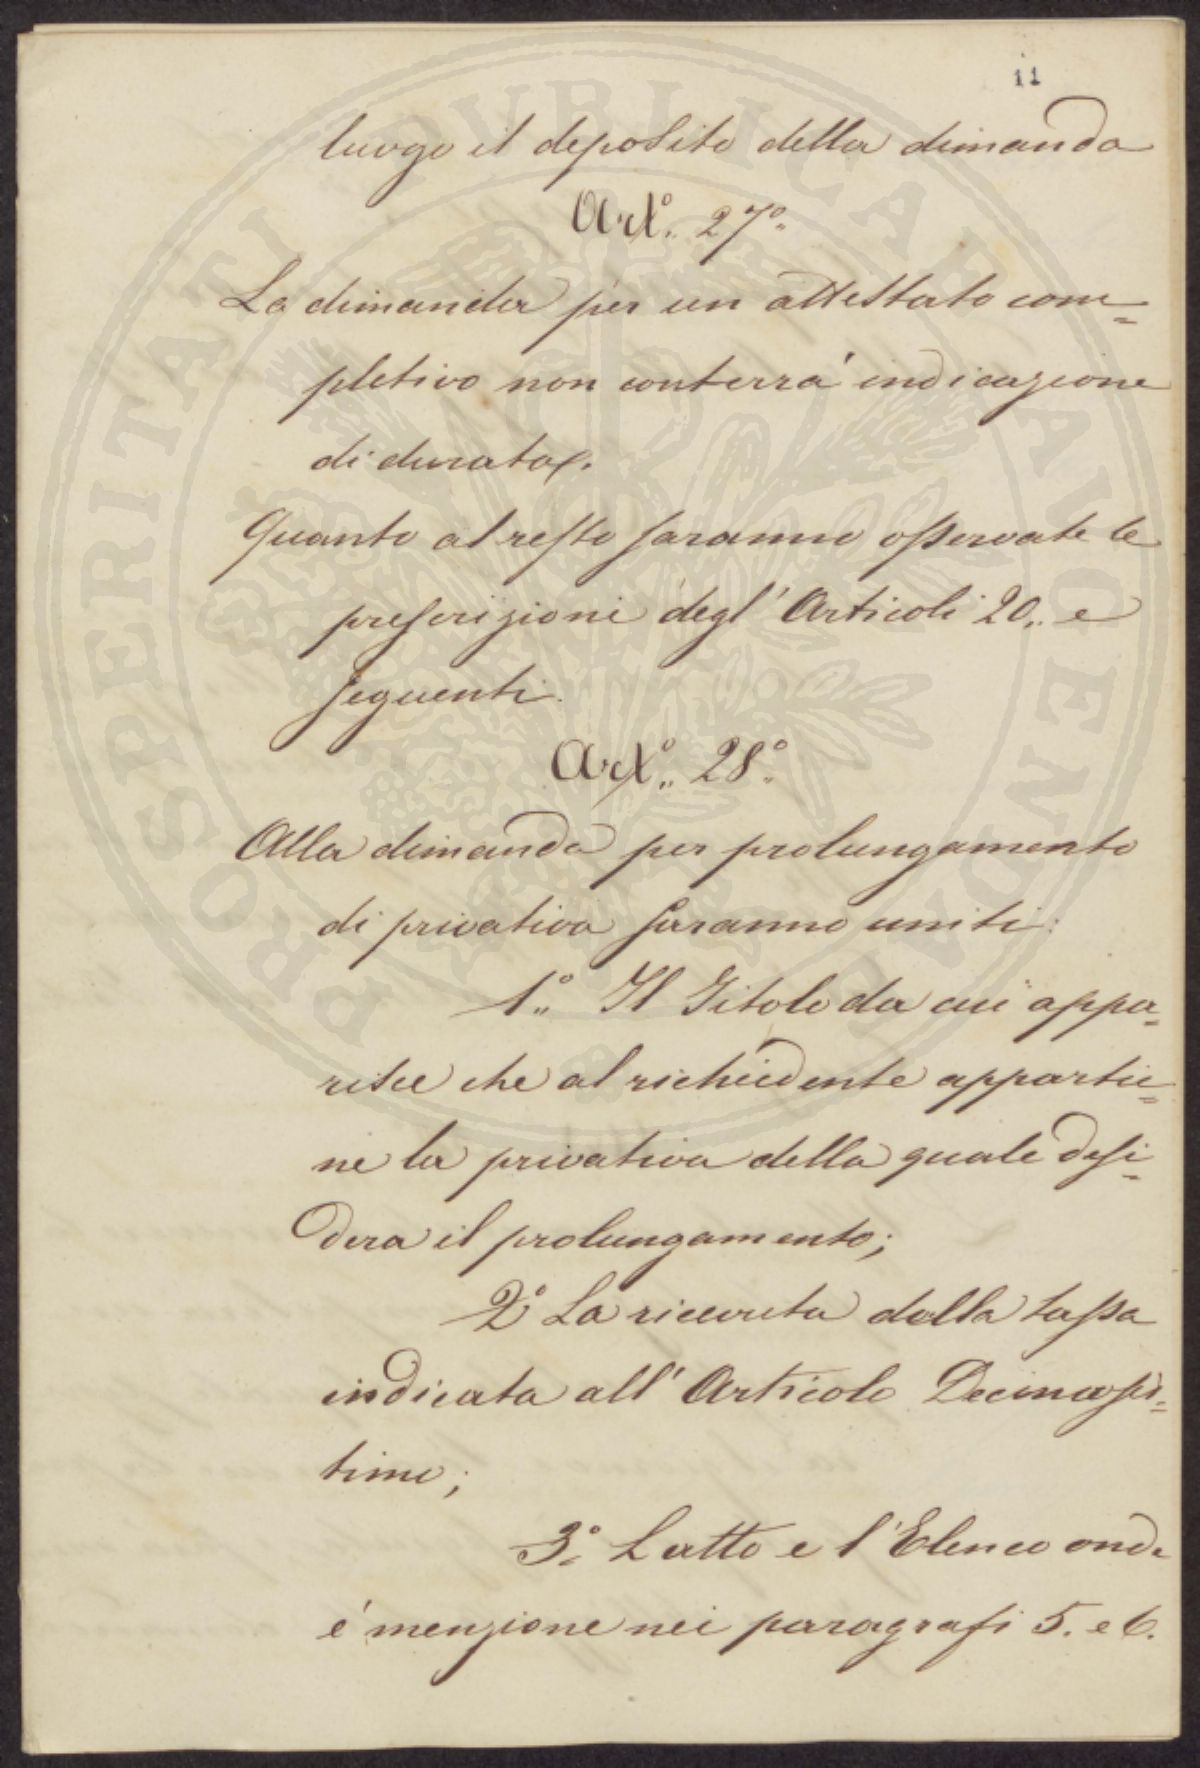 11
luogo il deposito della dimanda
Art.° 27.°
La dimanda per un attestato com=
pletivo non conterrá indicazione
di durata.
Quanto al resto saranno osservate le
prescrizioni degl' Articoli 20.. e
seguenti.
Art.° 28.°
Alla dimanda per prolungamento
di privativa saranno uniti:
1.° Il Titolo da cui appa=
risce che al richiedente appartie=
ne la privativa della quale desi=
dera il prolungamento;
2.° La ricevuta della tassa
indicata all' Articolo Decimaset=
timo;
3.° L'atto e l'Elenco onde
é menzione nei paragrafi 5. e 6.
PROSPERITATI PUBLICAE AUGENDAE